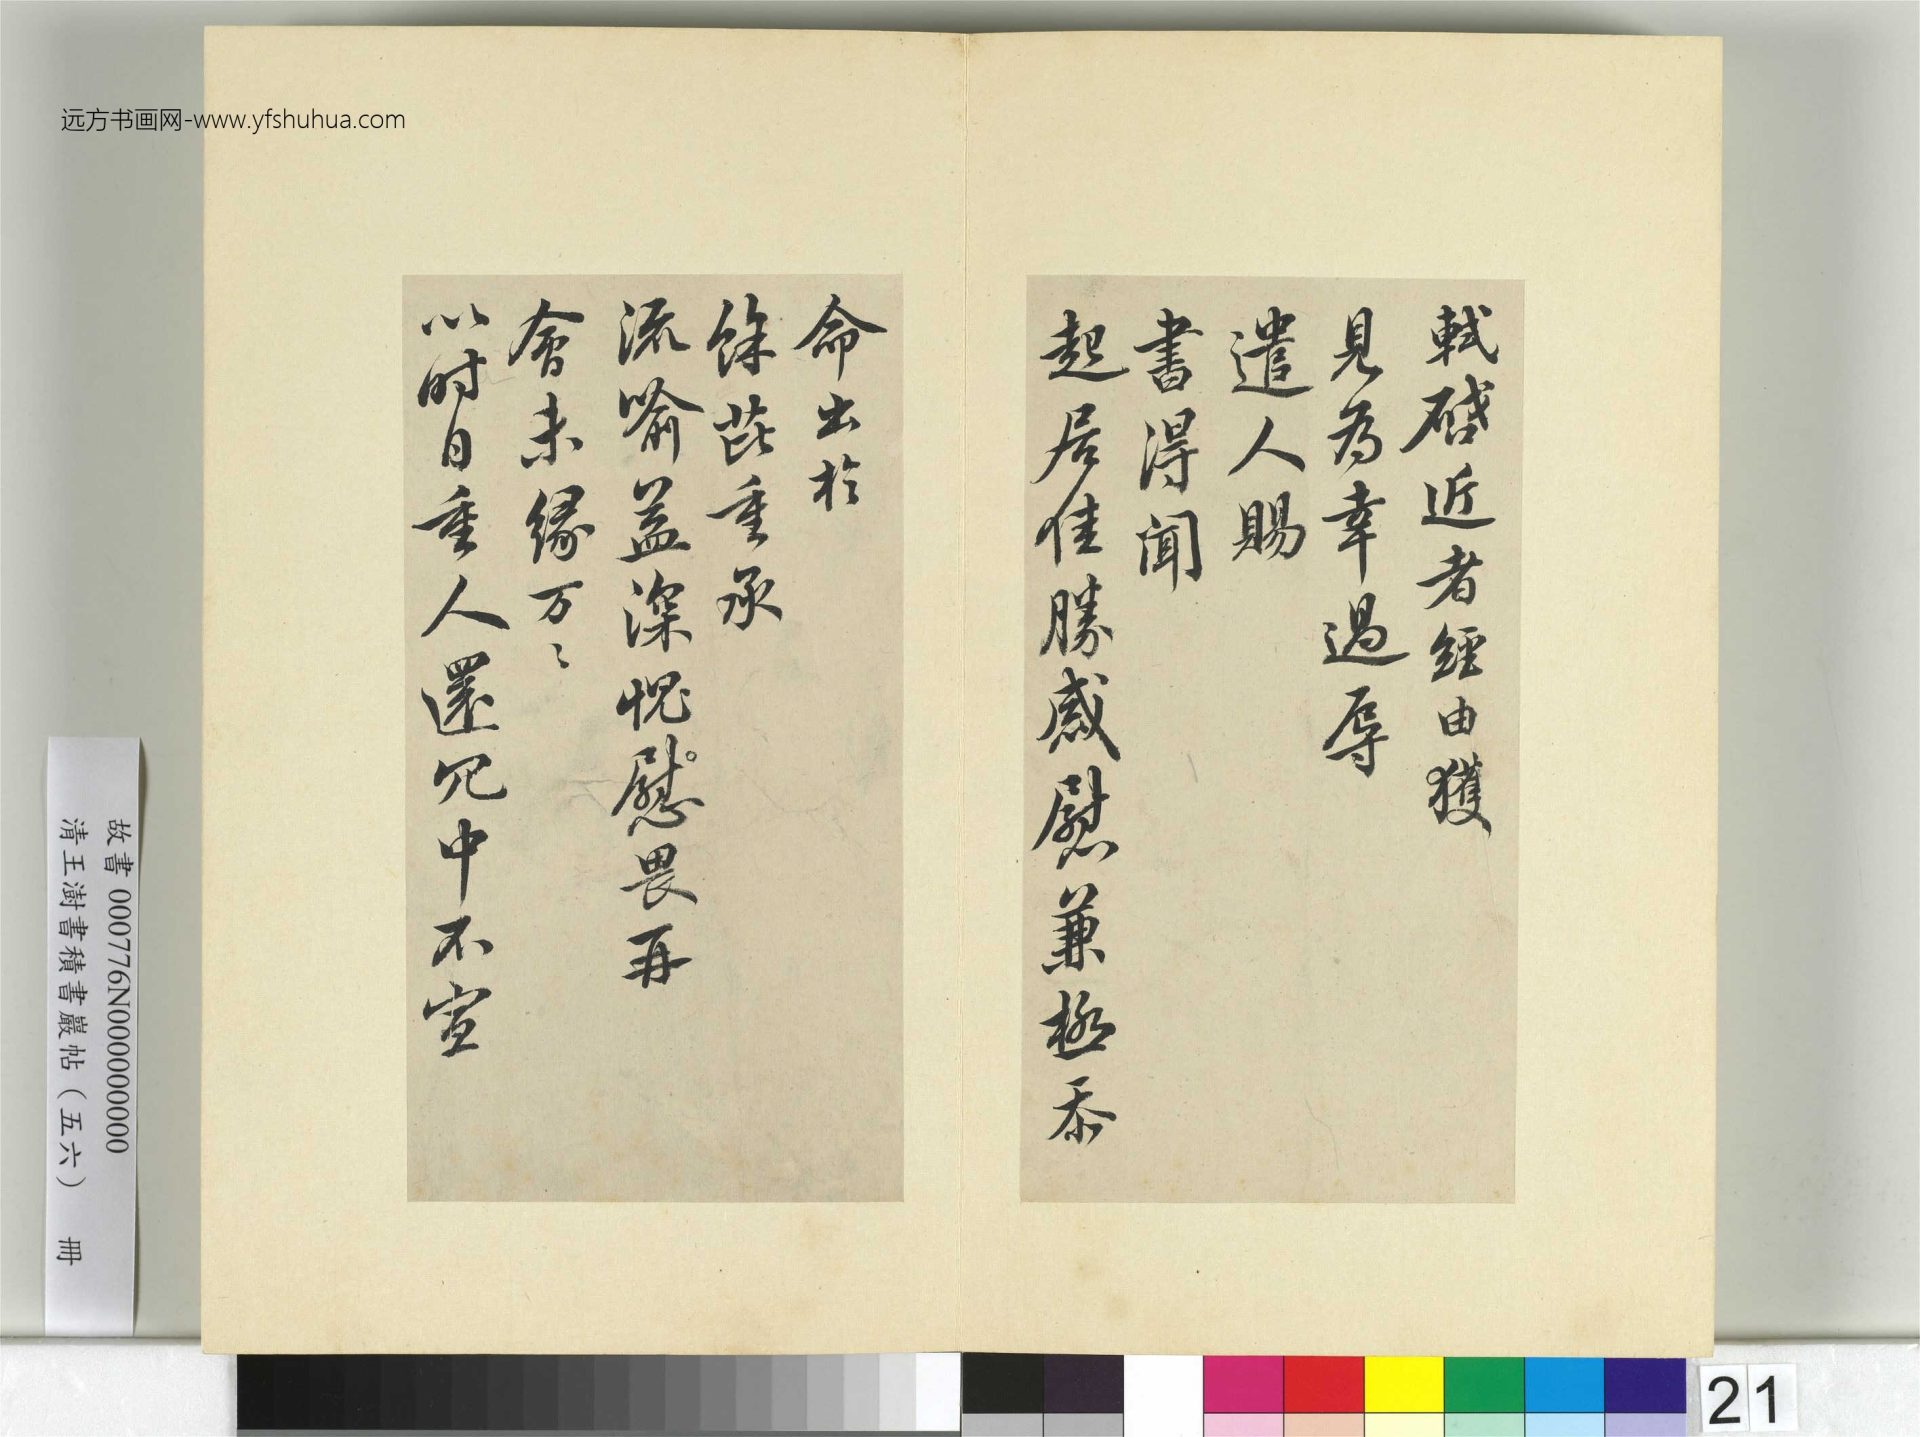 远方书画网-www.yfshuhua.com
軾啓近者經由獲
見為幸過辱
遣人賜
書得聞
起居佳勝感慰兼極忝
命出於
餘芘重承
流喻益深愧慰畏再
會未緣万〻
以时自重人還冗中不宣
故書 000776N000000000
清王澍書積書巖帖（五六） 冊
21